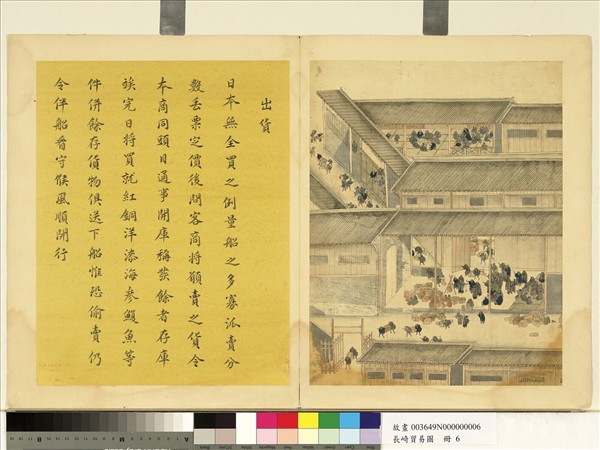 出貨
日本無全買之例量船之多寡派賣分
數丟票定價後問客商將願賣之貨令
本商同頭目通事開庫稱發餘者存庫
竢完日將買就紅銅洋漆海參鰒魚等
件併餘存貨物俱送下船惟恐偷賣仍
令伴船看守候風順開行
故畫 003649N000000006
長崎貿易圖 冊 6